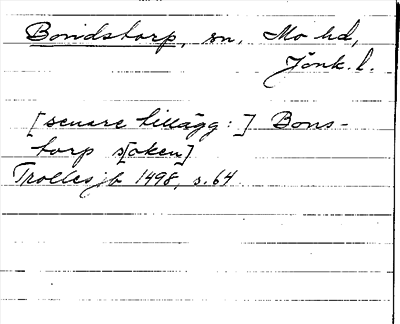 Bondstorp, sn, Mo hd,
Jönk. l.
[senare tillägg:] Bons-
torp s[oken]
Trolles jb 1498, s. 64